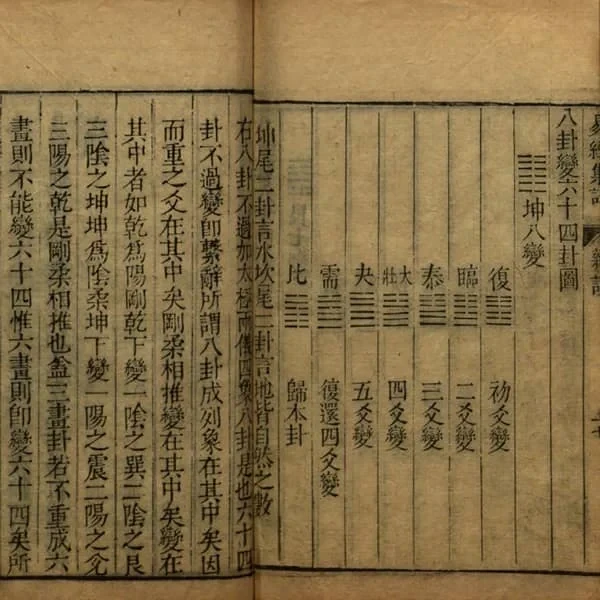 八卦變六十四卦圖
坤八變
復 初爻變
臨 二爻變
泰 三爻變
大壯 四爻變
夬 五爻變
需 復還四爻變
比 歸本卦
坤尾二卦言水坎尾二卦言地皆自然之數
右八卦不過加太極兩儀四象八卦是也六十四
卦不過變卽繫辭所謂八卦成列象在其中矣因
而重之爻在其中矣剛柔相推變在其中矣變在
其中者如乾爲陽剛乾下變一陰之巽二陰之艮
三陰之坤坤爲陰柔坤下變一陽之震二陽之兌
三陽之乾是剛柔相推也葢三畫卦若不重成六
畫則不能變六十四惟六畫則卽變六十四矣所